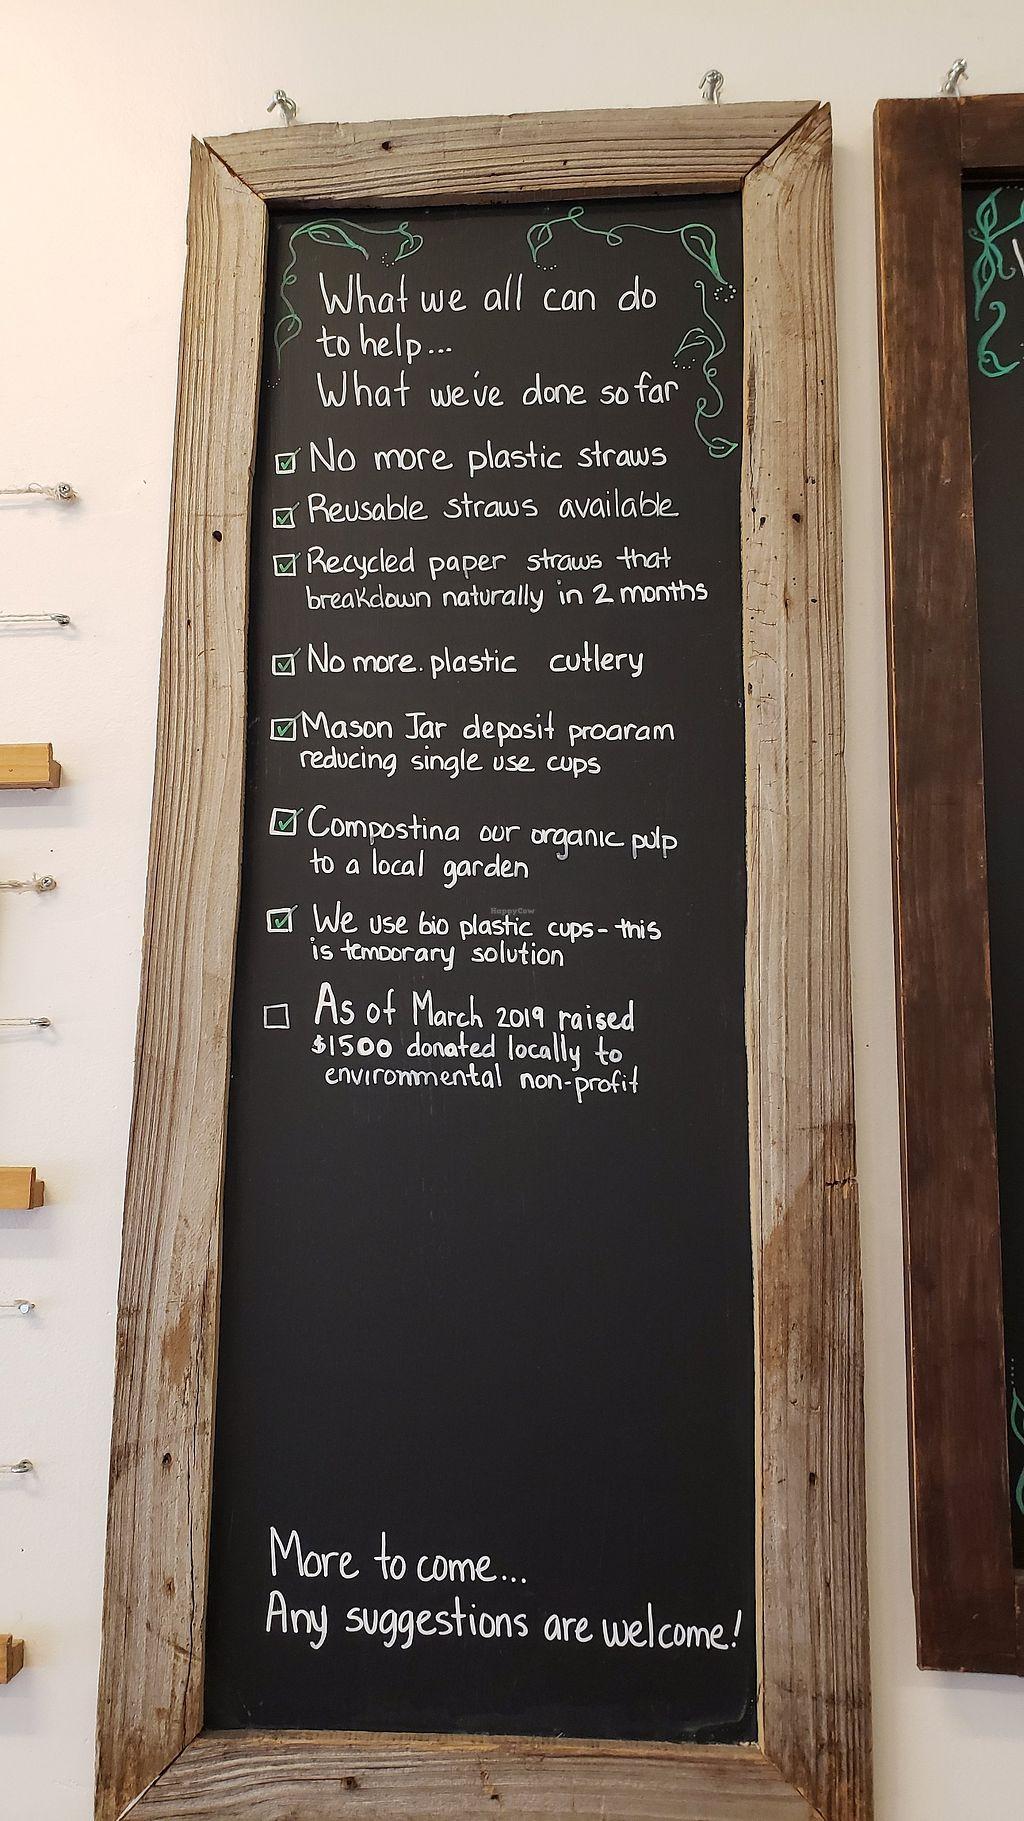 What we all can do
to help...
What we've done so far
No more plastic straws
Reusable straws available
Recycled paper straws that
breakdown naturally in 2 months
No more plastic cutlery
Mason Jar deposit program
reducing single use cups
Composting our organic pulp
to a local garden
HappyCow
We use bio plastic cups - this
is temporary solution
As of March 2019 raised
$1500 donated locally to
environmental non-profit
More to come...
Any suggestions are welcome!